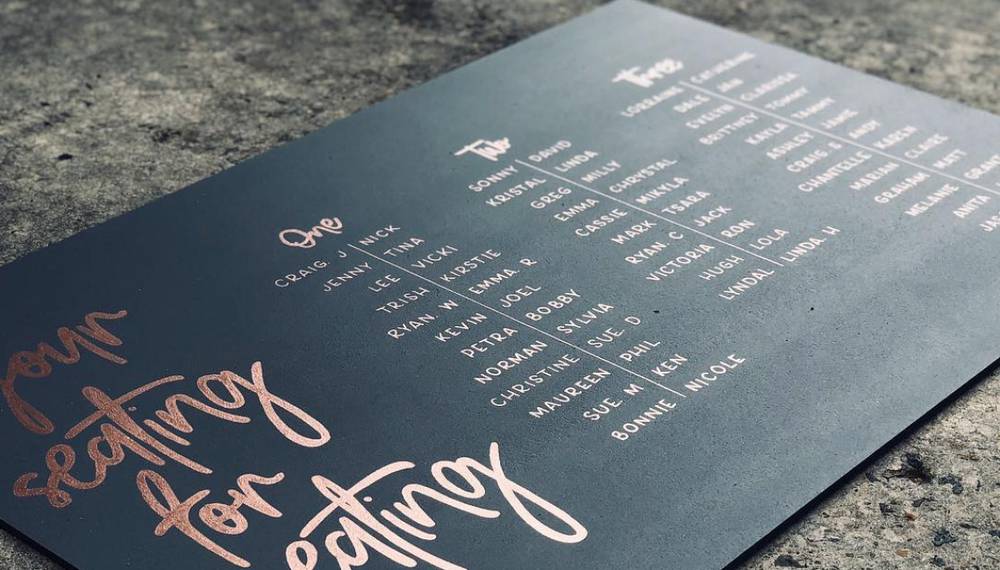 your
seating
for
eating
One
CRAIG. J NICK
JENNY TINA
LEE VICKI
TRISH KIRSTIE
RYAN. W EMMA. R
KEVIN JOEL
PETRA BOBBY
NORMAN SYLVIA
CHRISTINE SUE. D
MAUREEN PHIL
SUE. M KEN
BONNIE NICOLE
Two
SONNY DAVID
KRISTAL LINDA
GREG MILLY
EMMA CHRYSTAL
CASSIE MIKYLA
MARK TSARA
RYAN. C JACK
VICTORIA RON
HUGH LOLA
LYNDAL LINDA. H
Three
LORRAINE CATHERINE
DALE
EVELYN CLARISSA
BRITNEY TOMMY
KAYLA TAMMY
ASHLEY JAMIE
CRAIG. S ANDY
CHANTELLE KAREN
MARIAN CLAIRE
GRAHAM MATT
MELANIE
ANITA